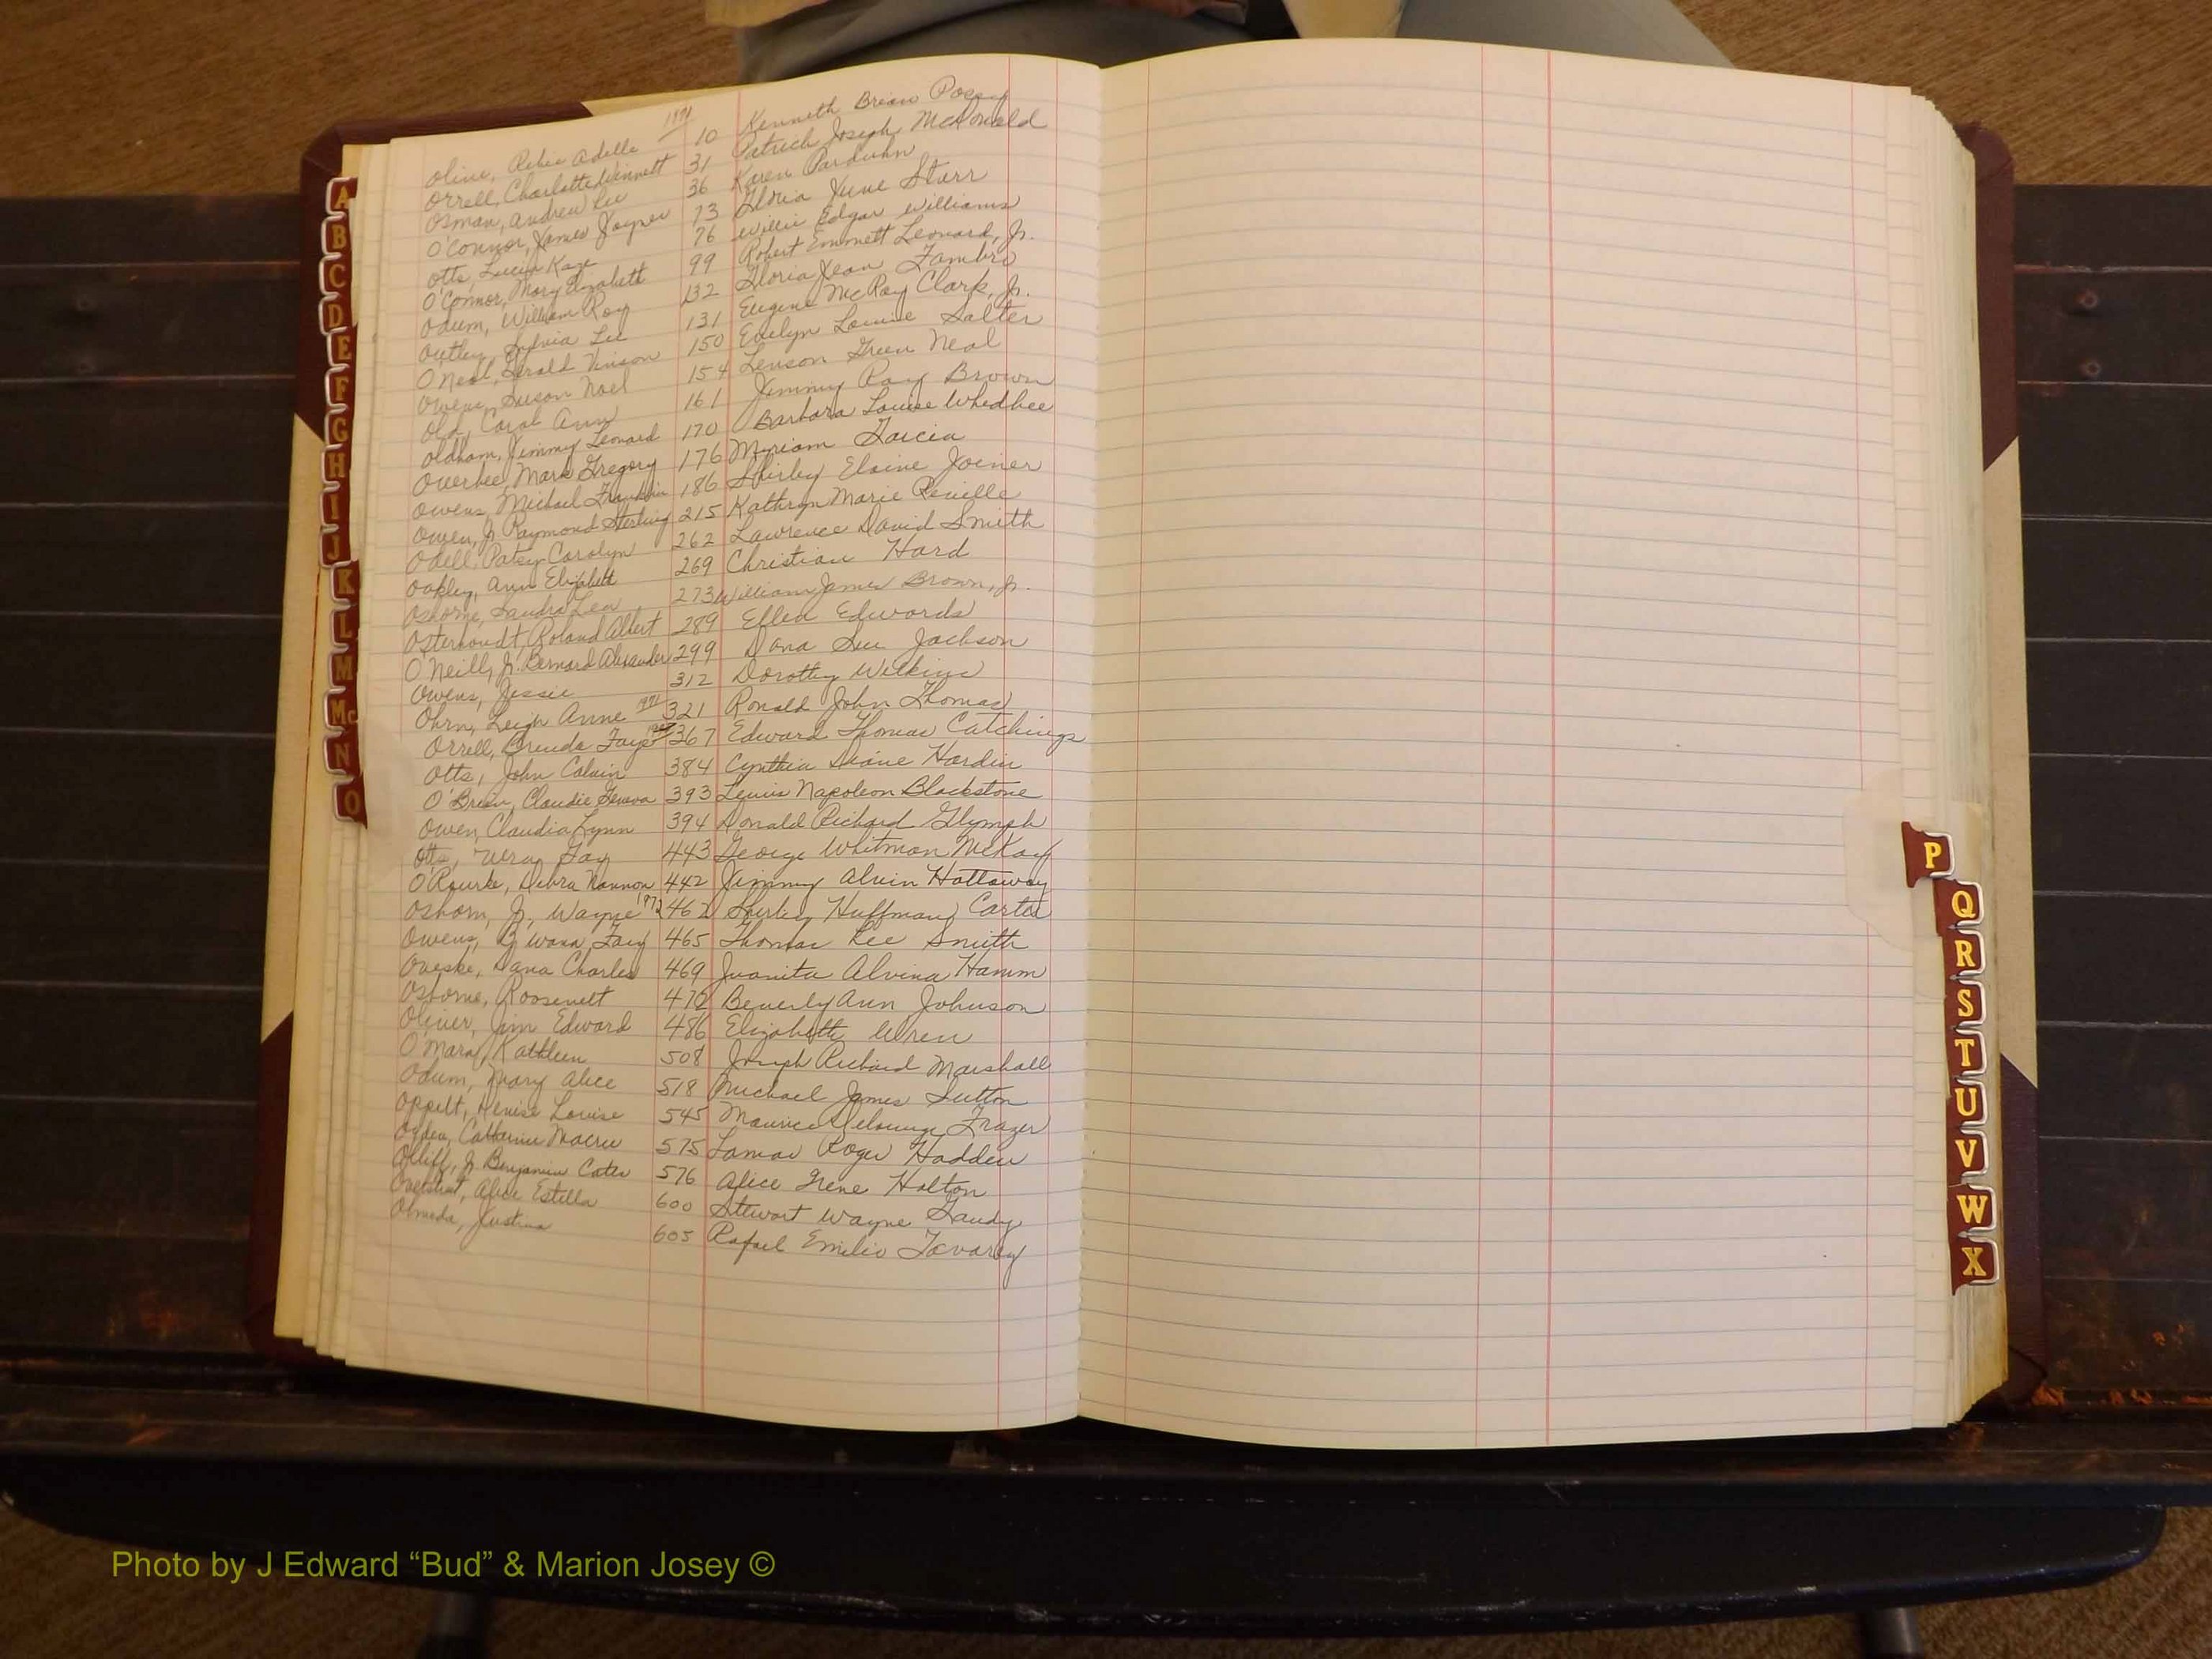 1971
Olive, Rebie Adelle 10 Kenneth Brian Posey
Orrell, Charlotte Winnett 31 Patrick Joseph McDonald
Osman, Andrew Lee 36 Karen Parduhn
O'Connor, James Joyner 73 Gloria June Starr
Otts, Lucia Kaye 76 Willie Edgar Williams
O'Connor, Mary Elizabeth 99 Robert Emmett Leonard, Jr.
Odum, William Roy 132 Gloria Jean Fambro
Outley, Sylvia Lee 131 Eugene McRay Clark, Jr.
O'Neal, Gerald Vinson 150 Evelyn Louise Salter
Owens, Susan Noel 154 Lenson Green Neal
Old, Carol Ann 161 Jimmy Ray Brown
Oldham, Jimmy Leonard 170 Barbara Louise Whedbee
Overbee, Mark Gregory 176 Miriam Garcia
Owens, Michael Franklin 186 Shirley Elaine Joiner
Owen, Jr. Raymond Sterling 215 Kathryn Marie Reville
Odell, Patsy Carolyn 262 Lawrence David Smith
Oakley, Ann Elizabeth 269 Christian Hard
Osborne, Sandra Lea 273 William James Brown, Jr.
Osterhoudt, Roland Albert 289 Effea Edwards
O'Neill, Jr. Bernard Alexander 299 Dana Sue Jackson
Owens, Jessie 312 Dorothy Wilkins
Ohrn, Leigh Anne 1971 321 Ronald John Thomas
Orrell, Brenda Faye 367 Edward Thomas Catchings
Otts, John Calvin 384 Cynthia Diane Hardin
O'Brien, Claudie Geneva 393 Lewis Napoleon Blackstone
Owen, Claudia Lynn 394 Donald Richard Glymph
Otts, Fay 443 George Whitman McKay
O'Rourke, Debra Nannon 442 Jimmy Alvin Hattaway
Osborn, Jr., Wayne 1972 462 Shirley Huffman Carter
Owens, Fay 465 Thomas Lee Smith
Oveske, Dana Charles 469 Juanita Alvina Hamm
Osborne, Roosevelt 472 Beverly Ann Johnson
Oliver, Jim Edward 486 Elizabeth Wren
O'Mara, Kathleen 508 Joseph Richard Marshall
Odum, Mary Alice 518 Michael James Sutton
Oppelt, Denise Louise 545 Maurice Frazer
Ogden, Catherine Macree 575 Lamar Roger Hadden
Olliff, Jr. Benjamin Cater 576 Alice Irene Halton
Overstreet, Alice Estella 600 Stewart Wayne Gandy
Olmeda, Justina 605 Rafael Emilio Tavarez
A
B
C
D
E
F
G
H
I
J
K
L
M
Mc
N
O
P
Q
R
S
T
U
V
W
X
Photo by J Edward “Bud” & Marion Josey ©